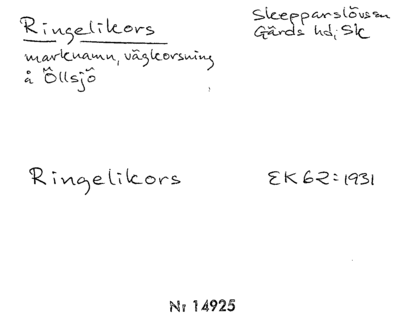 Ringelikors
Skepparslövs sn
Gärds hd, Sk
marknamn, vägkorsning
å Öllsjö
Ringelikors
EK 62: 1931
Nr 14925